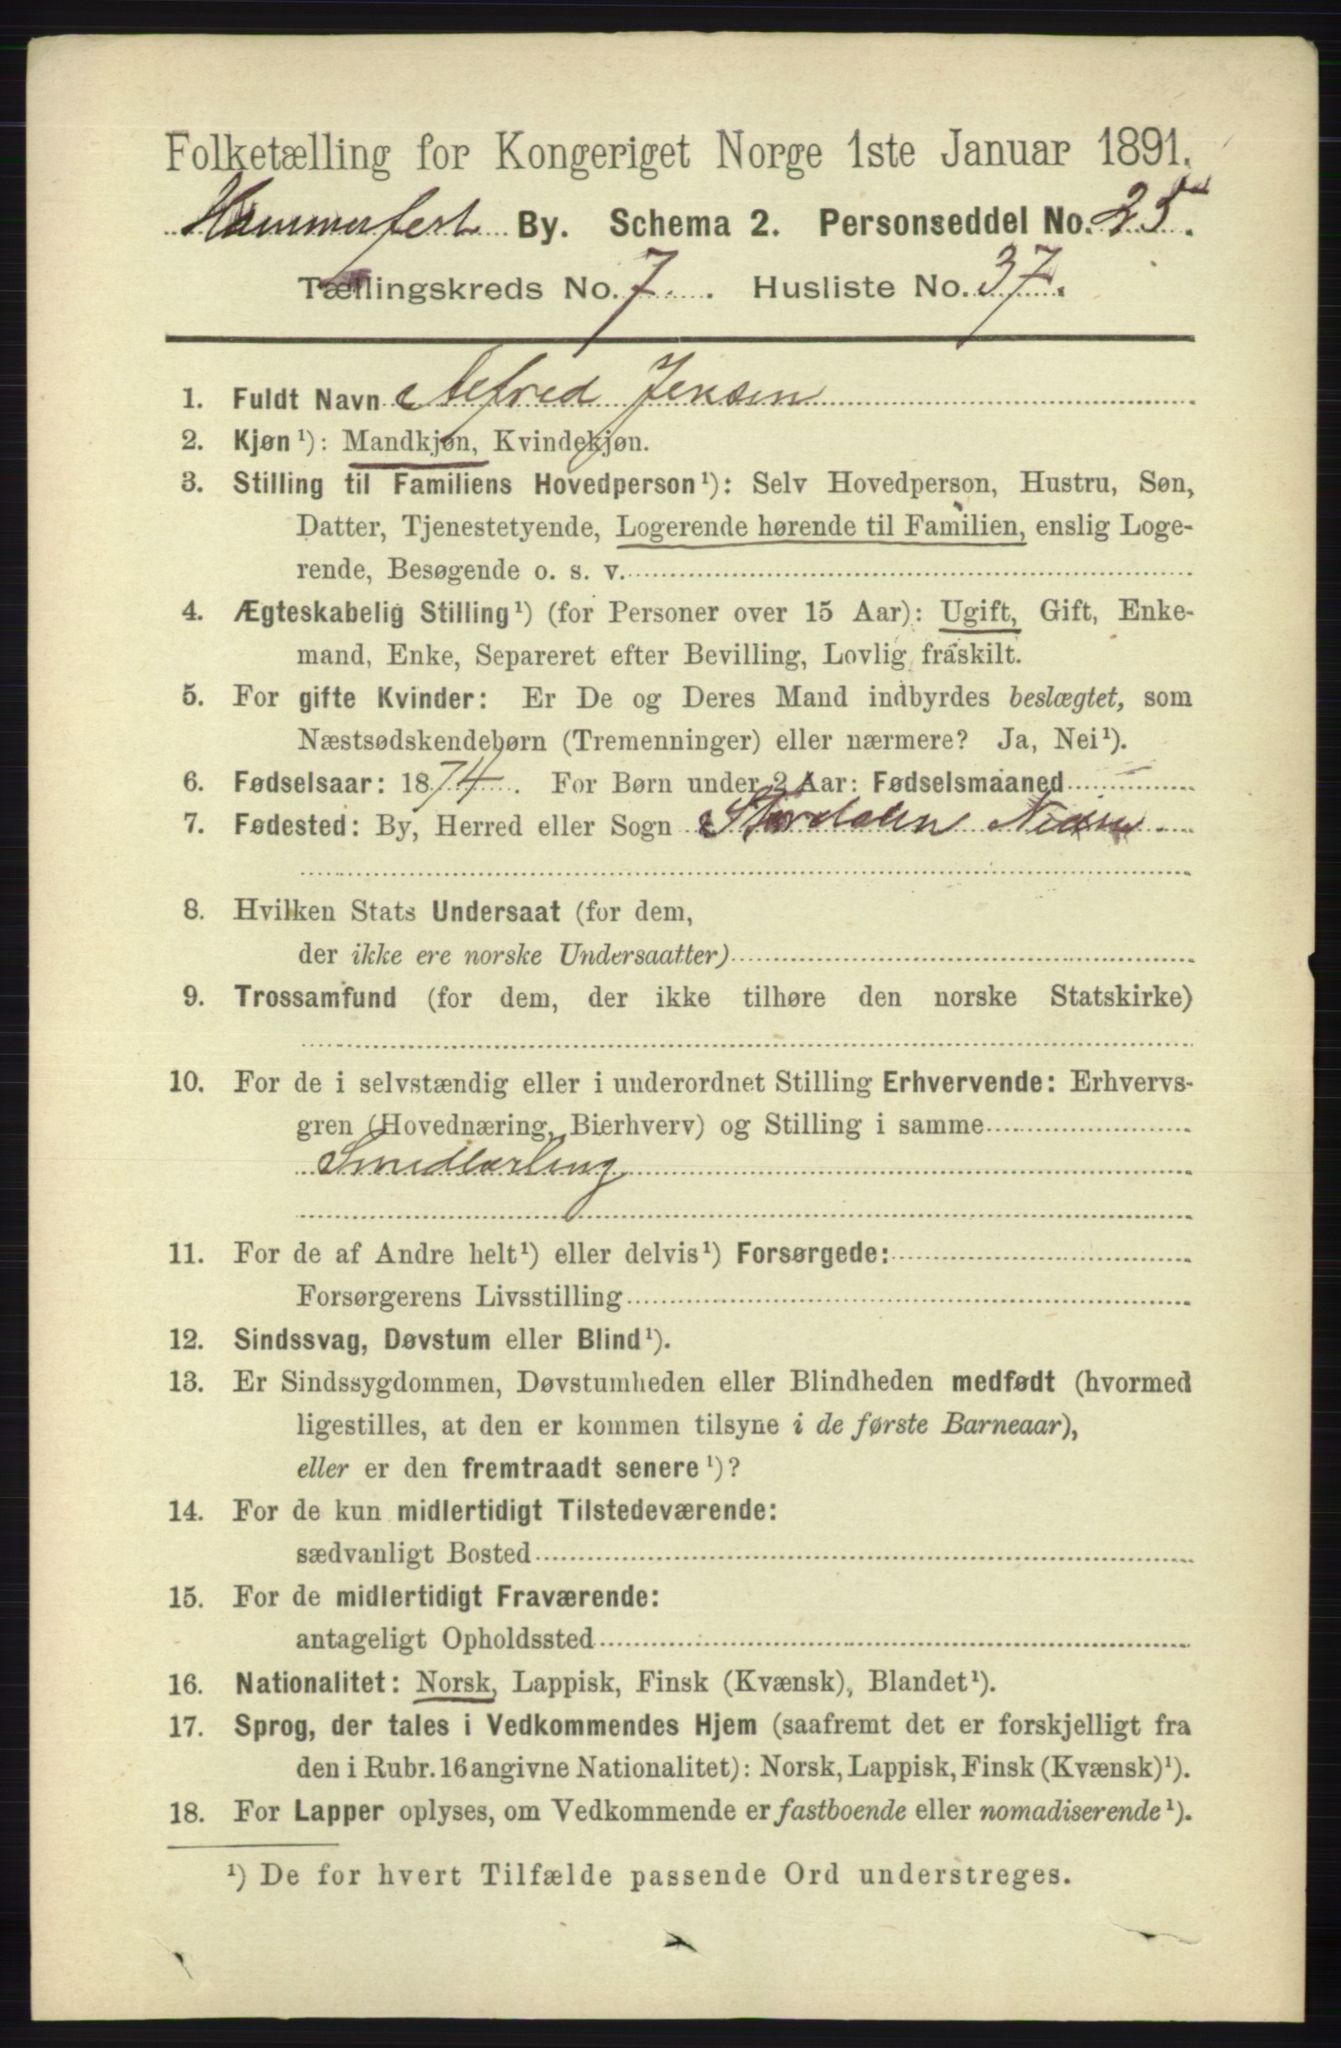 Folketælling for Kongeriget Norge 1ste Januar 1891.
Hammerfest By. Schema 2. Personseddel No. 25.
Tællingskreds No. 7. Husliste No. 37.
1. Fuldt Navn Alfred Jensen
2. Kjøn ¹): Mandkjøn, Kvindekjøn.
3. Stilling til Familiens Hovedperson ¹): Selv Hovedperson, Hustru, Søn,
Datter, Tjenestetyende, Logerende hørende til Familien, enslig Loge-
rende, Besøgende o. s. v.
4. Ægteskabelig Stilling ¹) (for Personer over 15 Aar): Ugift, Gift, Enke-
mand, Enke, Separeret efter Bevilling, Lovlig fraskilt.
5. For gifte Kvinder: Er De og Deres Mand indbyrdes beslægtet, som
Næstsødskendebørn (Tremenninger) eller nærmere? Ja, Nei ¹).
6. Fødselsaar: 1874. For Børn under 2 Aar: Fødselsmaaned
7. Fødested: By, Herred eller Sogn
8. Hvilken Stats Undersaat (for dem,
der ikke ere norske Undersaatter)
9. Trossamfund (for dem, der ikke tilhøre den norske Statskirke)
10. For de i selvstændig eller i underordnet Stilling Erhvervende: Erhvervs-
gren (Hovednæring, Bierhverv) og Stilling i samme
Smedlærling
11. For de af Andre helt ¹) eller delvis ¹) Forsørgede:
Forsørgerens Livsstilling
12. Sindssvag, Døvstum eller Blind ¹).
13. Er Sindssygdommen, Døvstumheden eller Blindheden medfødt (hvormed
ligestilles, at den er kommen tilsyne i de første Barneaar),
eller er den fremtraadt senere ¹)?
14. For de kun midlertidigt Tilstedeværende:
sædvanligt Bosted
15. For de midlertidigt Fraværende:
antageligt Opholdssted
16. Nationalitet: Norsk, Lappisk, Finsk (Kvænsk), Blandet ¹).
17. Sprog, der tales i Vedkommendes Hjem (saafremt det er forskjelligt fra
den i Rubr. 16 angivne Nationalitet): Norsk, Lappisk, Finsk (Kvænsk) ¹).
18. For Lapper oplyses, om Vedkommende er fastboende eller nomadiserende ¹).
¹) De for hvert Tilfælde passende Ord understreges.